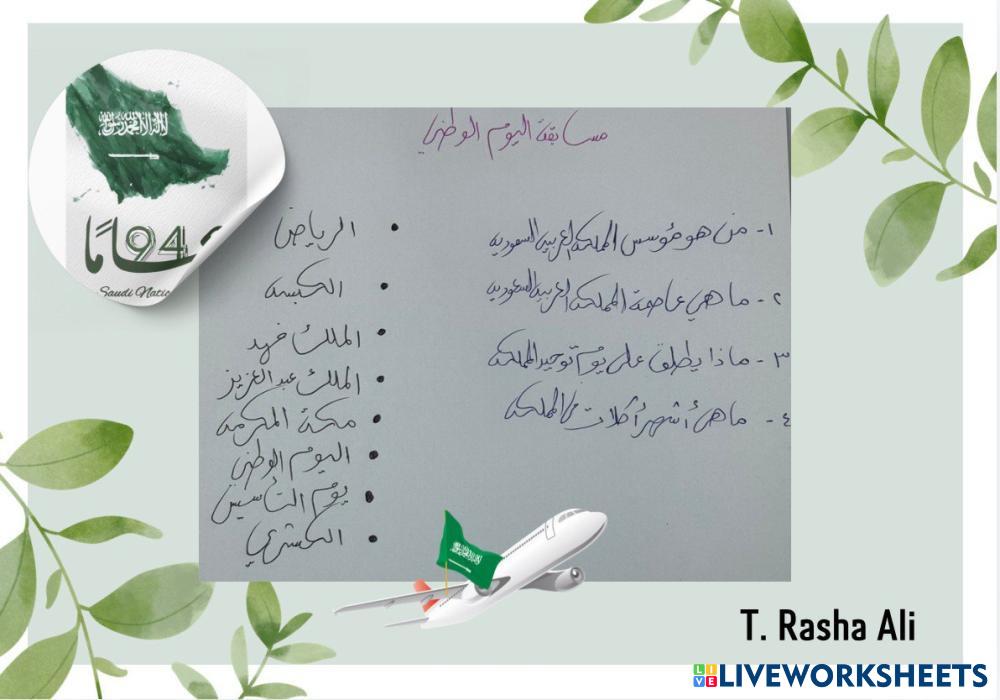 مسابقة اليوم الوطني
١- من هو مؤسس المملكة العربية السعودية
٢- ما هي عاصمة المملكة العربية السعودية
٣- ماذا يطلق على يوم توحيد المملكة
٤- ما هي أشهر أكلات في المملكة
• الرياض
• الكبسة
• الملك فهد
• الملك عبد العزيز
• مكة المكرمة
• اليوم الوطني
• يوم التأسيس
• الكشري
لا إله إلا الله محمد رسول الله
94
عامًا
Saudi Natio
T. Rasha Ali
LIVEWORKSHEETS